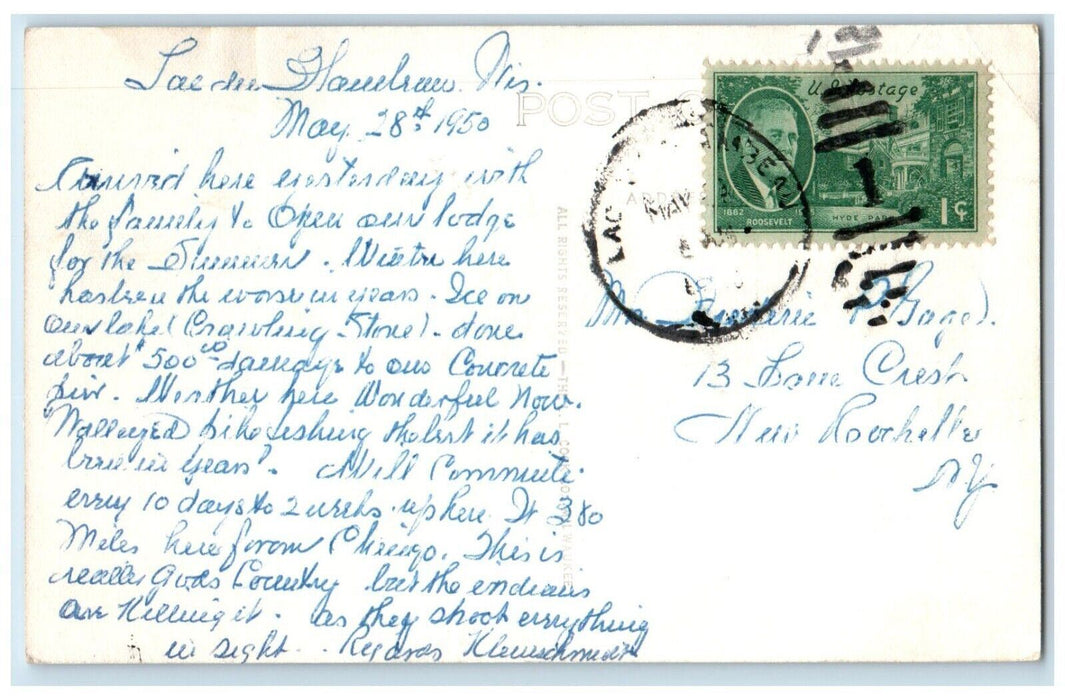 Lac du Flambeau Wis.
May 28th 1950
POST
Arrived here yesterday with
the family to Open our lodge
for the Summer. Winter here
has been the worse in years. Ice on
our lake (Crawling Stone). done
about $500.00 damage to our Concrete
pier. Weather here Wonderful Now.
"Walleyed pike fishing the best it has
been in years". Will Commute
every 10 days to 2 weeks up here. It 380
Miles here from Chicago. This is
really Gods Country but the endians
are Killing it. as they shoot everything
in sight. Regards Kleinschmidt
U.S. Postage
1882
ROOSEVELT
HYDE PARK
1¢
LAC
MAY
ALL RIGHTS RESERVED — THE L. L. COOK CO. MILWAUKEE
Gage
13 Lone Crest
New Rochelle
NY